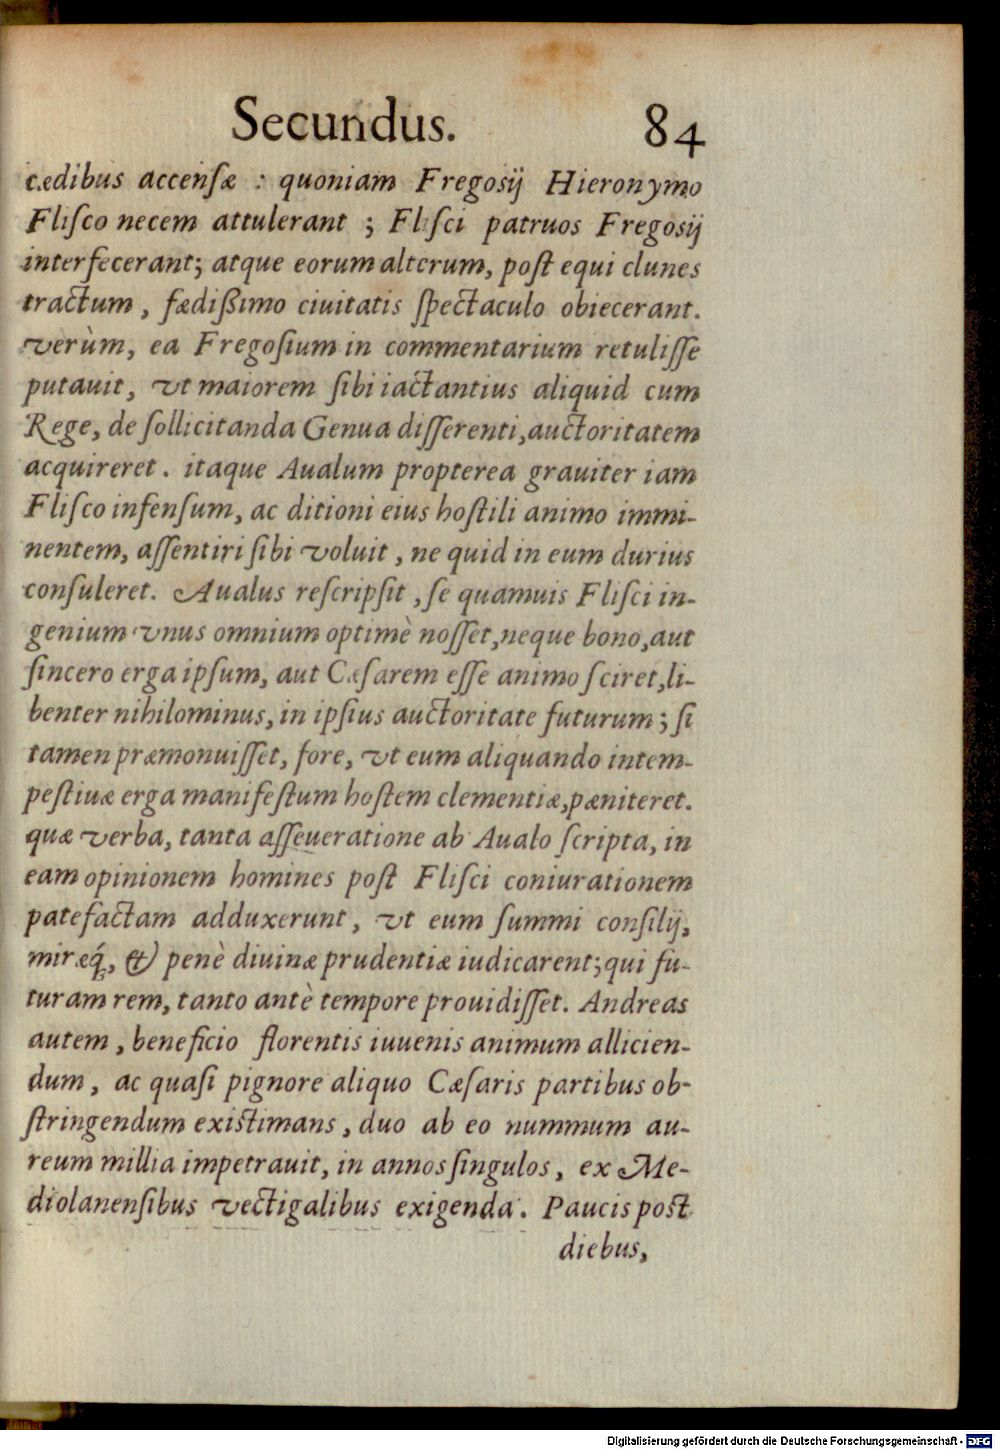 Secundus. 84
cædibus accenſæ : quoniam Fregosij Hieronymo
Fliſco necem attulerant ; Fliſci patruos Fregosij
interfecerant; atque eorum alterum, poſt equi clunes
tractum, fædiſsimo ciuitatis ſpectaculo obiecerant.
verùm, ea Fregoſium in commentarium retuliſſe
putauit, vt maiorem ſibi iactantius aliquid cum
Rege, de ſollicitanda Genua diſſerenti, auctoritatem
acquireret. itaque Aualum propterea grauiter iam
Fliſco infenſum, ac ditioni eius hoſtili animo immi-
nentem, aſſentiri ſibi voluit, ne quid in eum durius
conſuleret. Aualus reſcripſit, ſe quamuis Fliſci in-
genium vnus omnium optimè noſſet, neque bono, aut
ſincero erga ipſum, aut Cæſarem eſſe animo ſciret, li-
benter nihilominus, in ipſius auctoritate futurum; ſi
tamen præmonuiſſet, fore, vt eum aliquando intem-
peſtiuæ erga manifeſtum hoſtem clementiæ, pæniteret.
quæ verba, tanta aſſeueratione ab Aualo ſcripta, in
eam opinionem homines poſt Fliſci coniurationem
patefactam adduxerunt, vt eum ſummi conſilij,
miræq́;, & penè diuinæ prudentiæ iudicarent; qui fu-
turam rem, tanto antè tempore prouidiſſet. Andreas
autem, beneficio florentis iuuenis animum allicien-
dum, ac quaſi pignore aliquo Cæſaris partibus ob-
ſtringendum existimans, duo ab eo nummum au-
reum millia impetrauit, in annos ſingulos, ex Me-
diolanenſibus vectigalibus exigenda. Paucis post
diebus,
Digitalisierung gefördert durch die Deutsche Forschungsgemeinschaft - DFG